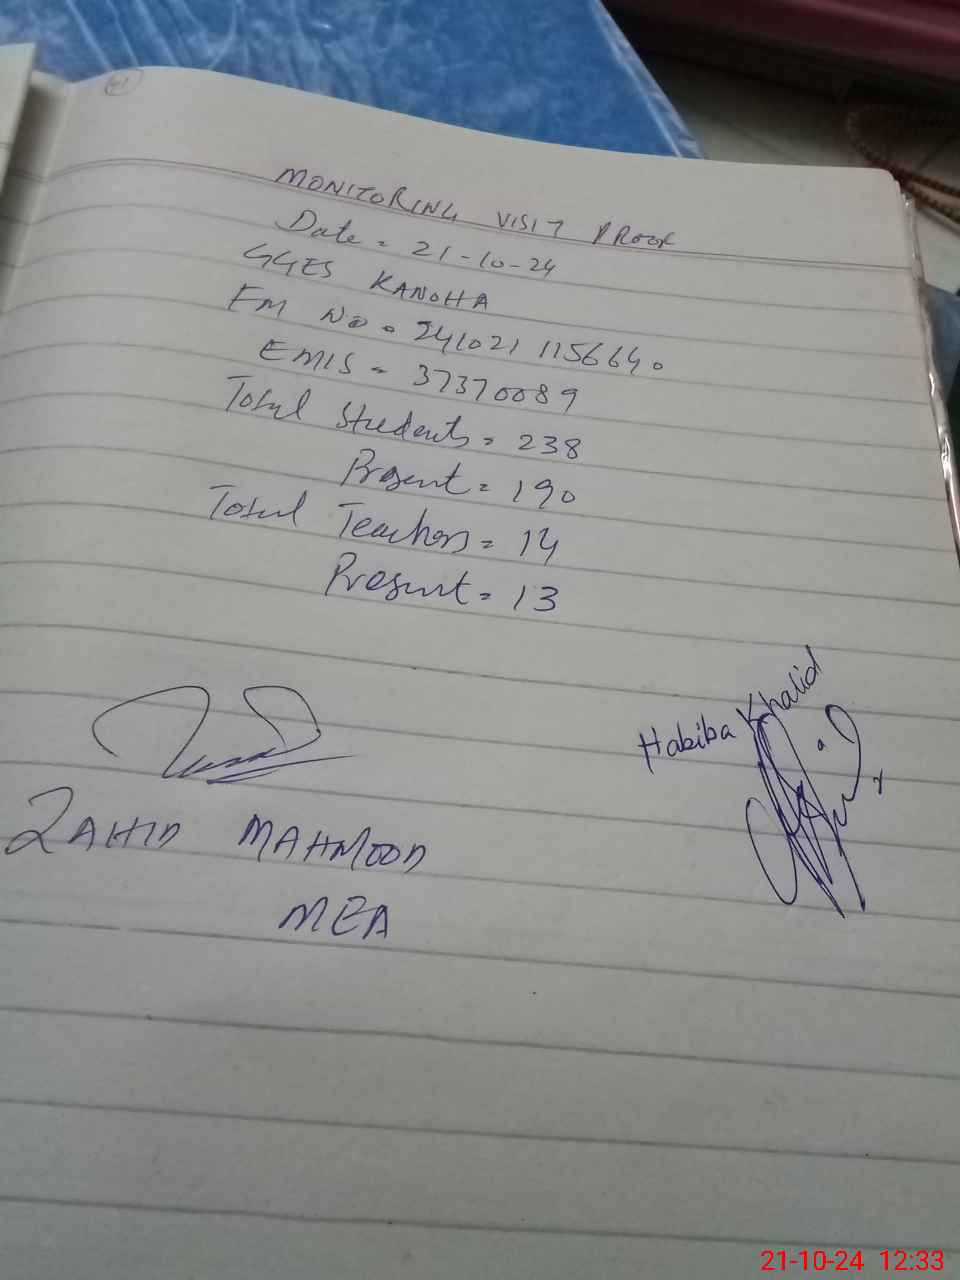 41
MONITORING VISIT PROOF
Date = 21-10-24
GGES KANOHA
FM NO = 241021 1156640
EMIS = 37370089
Total Students = 238
Present = 190
Total Teachers = 14
Present = 13
Habiba Khalid
ZAHID MAHMOOD
MEA
21-10-24 12:33